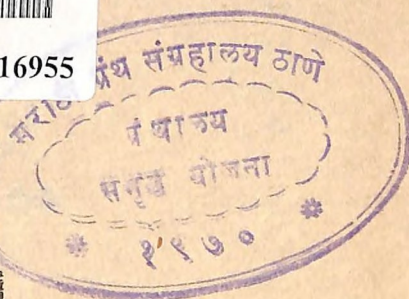 16955
मराठी ग्रंथ संग्रहालय ठाणे
ग्रंथालय
समृद्ध योजना
* १९७० *